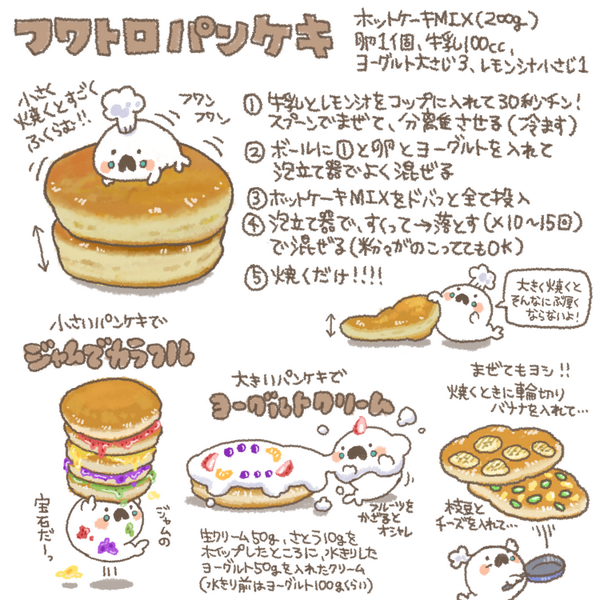 フワトロパンケキ
ホットケーキMIX(200g)
卵1個、牛乳100cc、
ヨーグルト大さじ3、レモン汁小さじ1
小さく
焼くとすごく
ふくらむ!!
フワン
フワン
① 牛乳とレモン汁をコップに入れて30秒チン!
スプーンでまぜて、分離させる(冷ます)
② ボールに①と卵とヨーグルトを入れて
泡立て器でよく混ぜる
③ ホットケーキMIXをドバっと全て投入
④ 泡立て器で、すくって→落とす(×10〜15回)
で混ぜる(粉々がのこっててもOK)
⑤ 焼くだけ!!!!
大きく焼くと
そんなにぶ厚く
ならないよ!
小さいパンケキで
ジャムでカラフル
ジャムの
宝石だーっ
大きいパンケキで
ヨーグルトクリーム
フルーツを
かざると
オシャレ
生クリーム50g、さとう10gを
ホイップしたところに、水きりした
ヨーグルト50gを入れたクリーム
(水きり前はヨーグルト100gくらい)
まぜてもヨシ!!
焼くときに輪切り
バナナを入れて…
枝豆と
チーズを入れて…